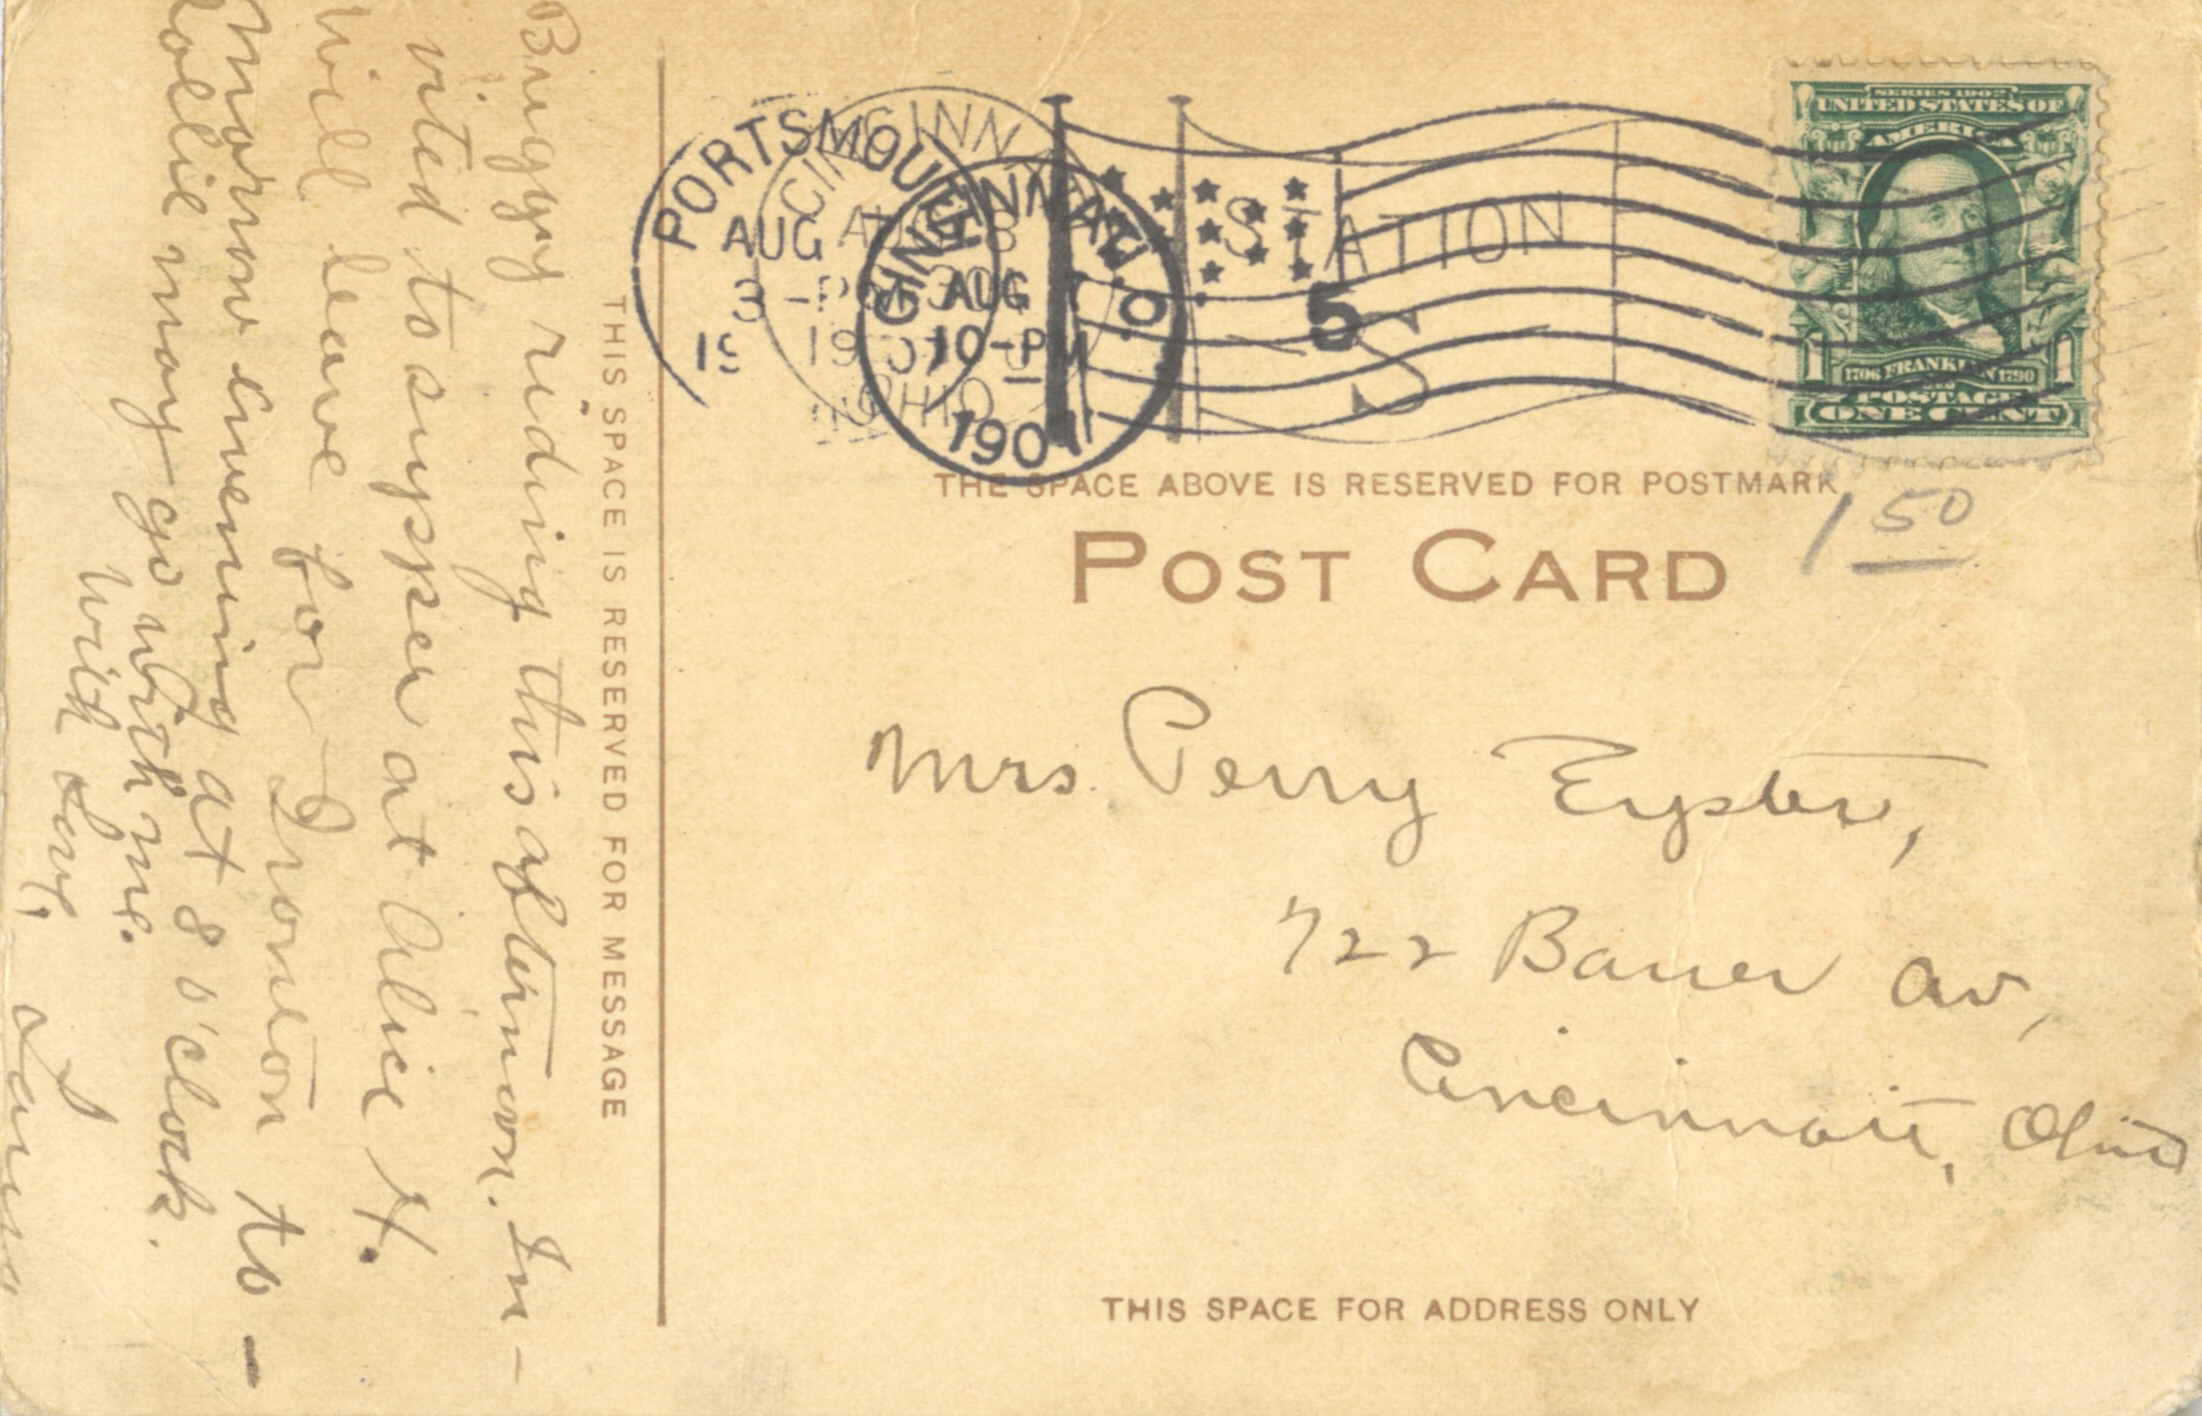 Buggy riding this afternoon. In-
vited to supper at Alice H.
Will leave for Ironton to-
morrow evening at 8 o'clock.
Lollie may go with me.
With Love,
THIS SPACE IS RESERVED FOR MESSAGE
PORTSMOUTH
AUG
3-PM
19
CINCINNATI, O.
AUG
10-PM
190
CINCINN
AUG
19
OHIO
STATION
S
5
SERIES 1902
UNITED STATES OF
AMERICA
1 1706 FRANKLIN 1790 1
POSTAGE
ONE CENT
THE SPACE ABOVE IS RESERVED FOR POSTMARK
1 50
POST CARD
Mrs. Perry Eyster,
722 Bauer Av,
Cincinnati, Ohio
THIS SPACE FOR ADDRESS ONLY